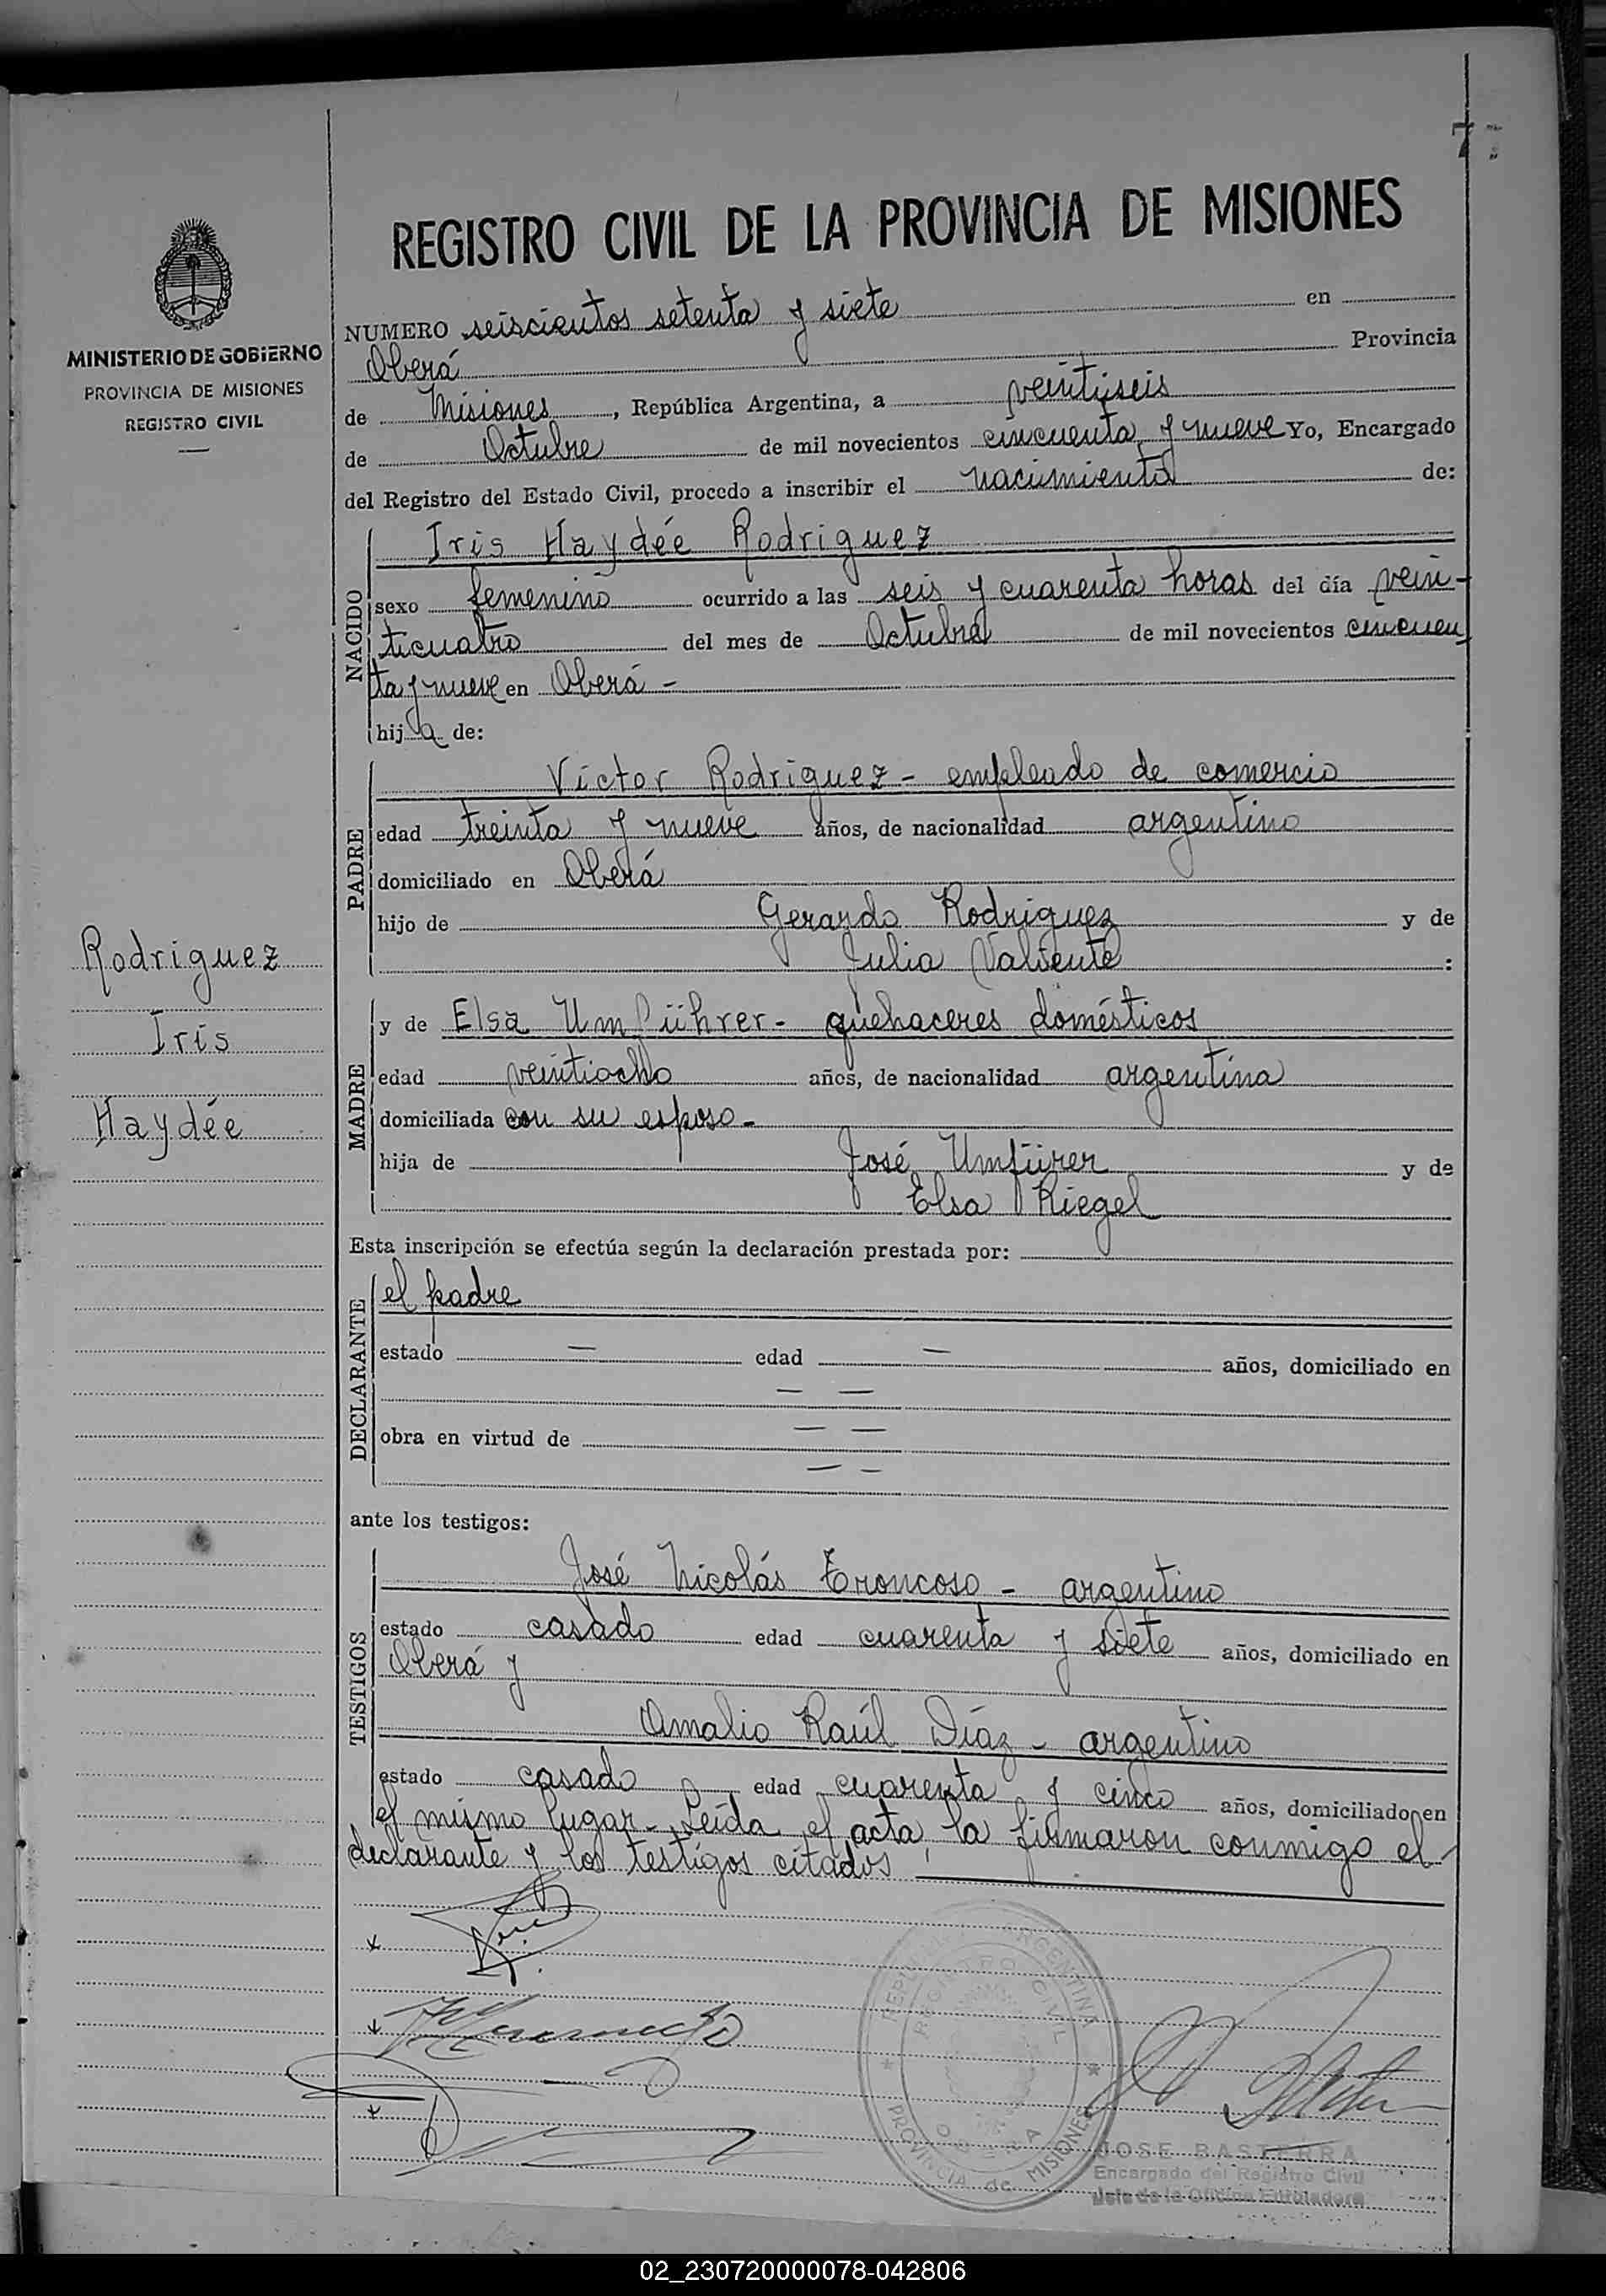 7
REGISTRO CIVIL DE LA PROVINCIA DE MISIONES
MINISTERIO DE GOBIERNO
PROVINCIA DE MISIONES
REGISTRO CIVIL
NUMERO seiscientos setenta y siete en
Oberá Provincia
de Misiones, República Argentina, a veintiseis
de Octubre de mil novecientos cincuenta y nueve Yo, Encargado
del Registro del Estado Civil, procedo a inscribir el nacimiento de:
NACIDO
Iris Haydée Rodriguez
sexo femenino ocurrido a las seis y cuarenta horas del día vein-
ticuatro del mes de Octubre de mil novecientos cincuen
ta y nueve en Oberá -
hija de:
PADRE
Víctor Rodriguez - empleado de comercio
edad treinta y nueve años, de nacionalidad argentino
domiciliado en Oberá
hijo de Gerardo Rodriguez y de
Julia Valiente :
Rodriguez
Iris
Haydée
MADRE
y de Elsa Umführer - quehaceres domésticos
edad veintiocho años, de nacionalidad argentina
domiciliada con su esposo -
hija de José Umfürer y de
Elsa Riegel
Esta inscripción se efectúa según la declaración prestada por:
DECLARANTE
el padre
estado — edad — años, domiciliado en
— —
obra en virtud de — —
— —
ante los testigos:
TESTIGOS
José Nicolás Troncoso - argentino
estado casado edad cuarenta y siete años, domiciliado en
Oberá y
Amalio Raúl Díaz - argentino
estado casado edad cuarenta y cinco años, domiciliado en
el mismo lugar - Leída el acta la firmaron conmigo el
declarante y los testigos citados
REPUBLICA ARGENTINA
REGISTRO CIVIL
OBERA
PROVINCIA de MISIONES
JOSE BASTERRA
Encargado del Registro Civil
Jefe de la Oficina Enroladora
02_230720000078-042806